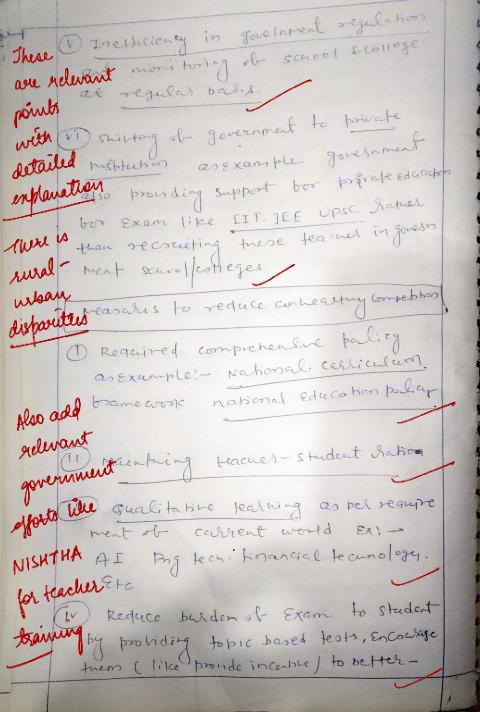 These
are relevant
points
with
detailed
explanation
There is
rural-
urban
disparities
Also add
relevant
government
efforts like
NISHTHA
for teacher
training
(v) Inefficiency in government regulation
monitoring of school & college
at regular basis.
(vi) Shifting of government to private
institution as example government
also providing support for private education
for Exam like IIT. JEE UPSC. Rather
than recruiting these teacher in govern
ment school/colleges
measures to reduce unhealthy competition
(i) Required comprehensive policy
as example:- National curriculum
framework. national education policy
(ii) maintaining teacher-student ration
(iii) Qualitative learning as per require
ment of current world Ex:→
AI. tech. financial technology.
Etc
(iv) Reduce burden of Exam to student
by providing topic based tests, Encourage
them (like provide incentive) to better-